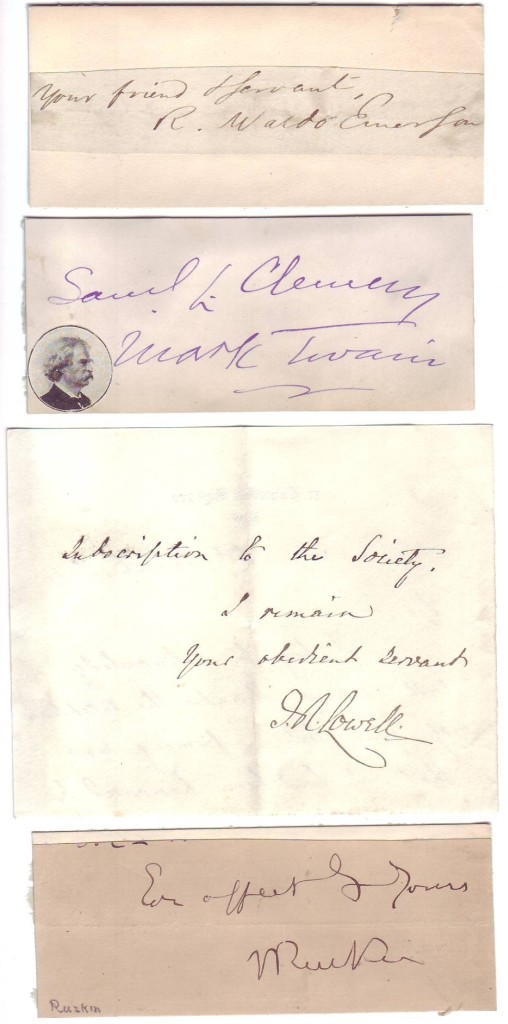 Your friend & servant,
R. Waldo Emerson
Saml L. Clemens
Mark Twain
Subscription to the Society.
I remain
Your obedient Servant
J.R. Lowell.
Ever affectly Yours
JRuskin
Ruskin